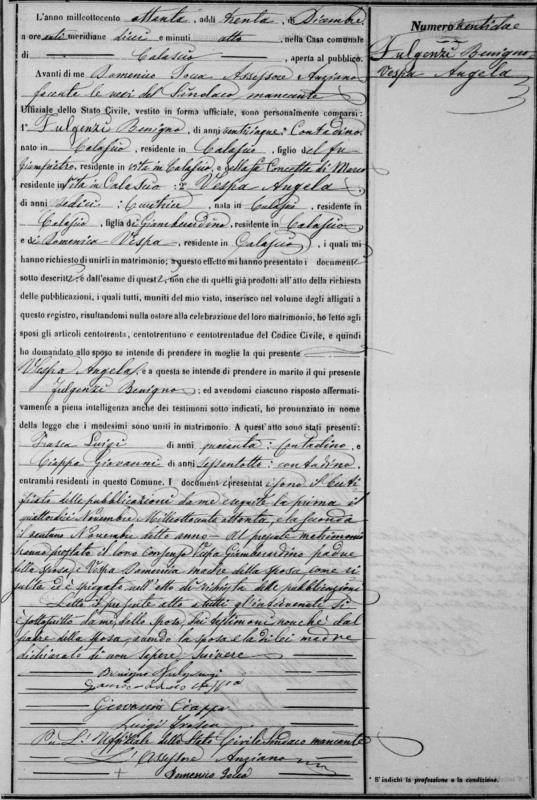 L'anno milleottocento ottanta, addì trenta, di Dicembre
a ore anti meridiane dieci e minuti otto, nella Casa comunale
di Calascio, aperta al pubblico.
Avanti di me Domenico Assessore Anziano
facente le veci del Sindaco mancante
Uffiziale dello Stato Civile, vestito in forma uffiziale, sono personalmente comparsi:
1° Fulgenzi Benigno, di anni venticinque: Contadino
nato in Calascio, residente in Calascio, figlio del fu
Giampietro, residente in vita in Calascio, e della fu Concetta di Marco
residente in vita in Calascio: 2° Vespa Angela,
di anni sedici: Cucitrice, nata in Calascio, residente in
Calascio, figlia di Giamberardino, residente in Calascio
e di Domenica Vespa, residente in Calascio, i quali mi
hanno richiesto di unirli in matrimonio; a questo effetto mi hanno presentato i documenti
sotto descritti, e dall'esame di questi, non che di quelli già prodotti all'atto della richiesta
delle pubblicazioni, i quali tutti, muniti del mio visto, inserisco nel volume degli alligati a
questo registro, risultandomi nulla ostare alla celebrazione del loro matrimonio, ho letto agli
sposi gli articoli centotrenta, centotrentuno e centotrentadue del Codice Civile, e quindi
ho domandato allo sposo se intende di prendere in moglie la qui presente
Vespa Angela, e a questa se intende di prendere in marito il qui presente
Fulgenzi Benigno; ed avendomi ciascuno risposto affermati-
vamente a piena intelligenza anche dei testimoni sotto indicati, ho pronunziato in nome
della legge che i medesimi sono uniti in matrimonio. A quest'atto sono stati presenti:
Frasca Luigi di anni quaranta: Contadino, e
Ciappa Giovanni di anni sessantotto: contadino,
entrambi residenti in questo Comune. I documenti presentati sono il Certi-
ficato delle pubblicazioni da me eseguite la prima il
quattordici Novembre Milleottocento ottanta, e la seconda
il ventuno Novembre detto anno - Al presente matrimonio
hanno prestato il loro consenso Vespa Giamberardino padre
della sposa e Vespa Domenica madre della sposa come ri-
sulta ed è spiegato nell'atto di richiesta delle pubblicazioni
Letto il presente atto a tutti gl'intervenuti si
è sottoscritto da me, dello sposo, dai testimoni nonché dal
padre della sposa, avendo la sposa e la di lei madre
dichiarato di non sapere scrivere
Benigno Fulgenzi
Giovanni Ciappa
Luigi Frasca
Per L'Uffiziale dello Stato Civile Sindaco mancante
L'Assessore Anziano
Numero trentidue
Fulgenzi Benigno
Vespa Angela
* S'indichi la professione o la condizione.